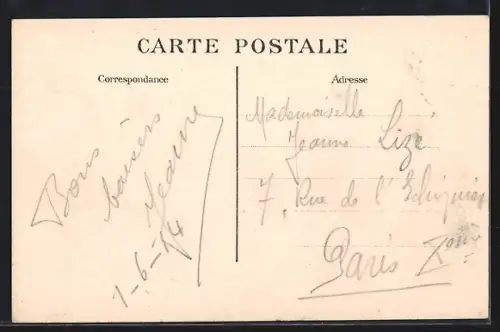 CARTE POSTALE
Correspondance
Adresse
Bons
baisers
Jeanne
1-6-14
Mademoiselle
Jeanne Lizé
7, Rue de l'Echiquier
Paris Xème